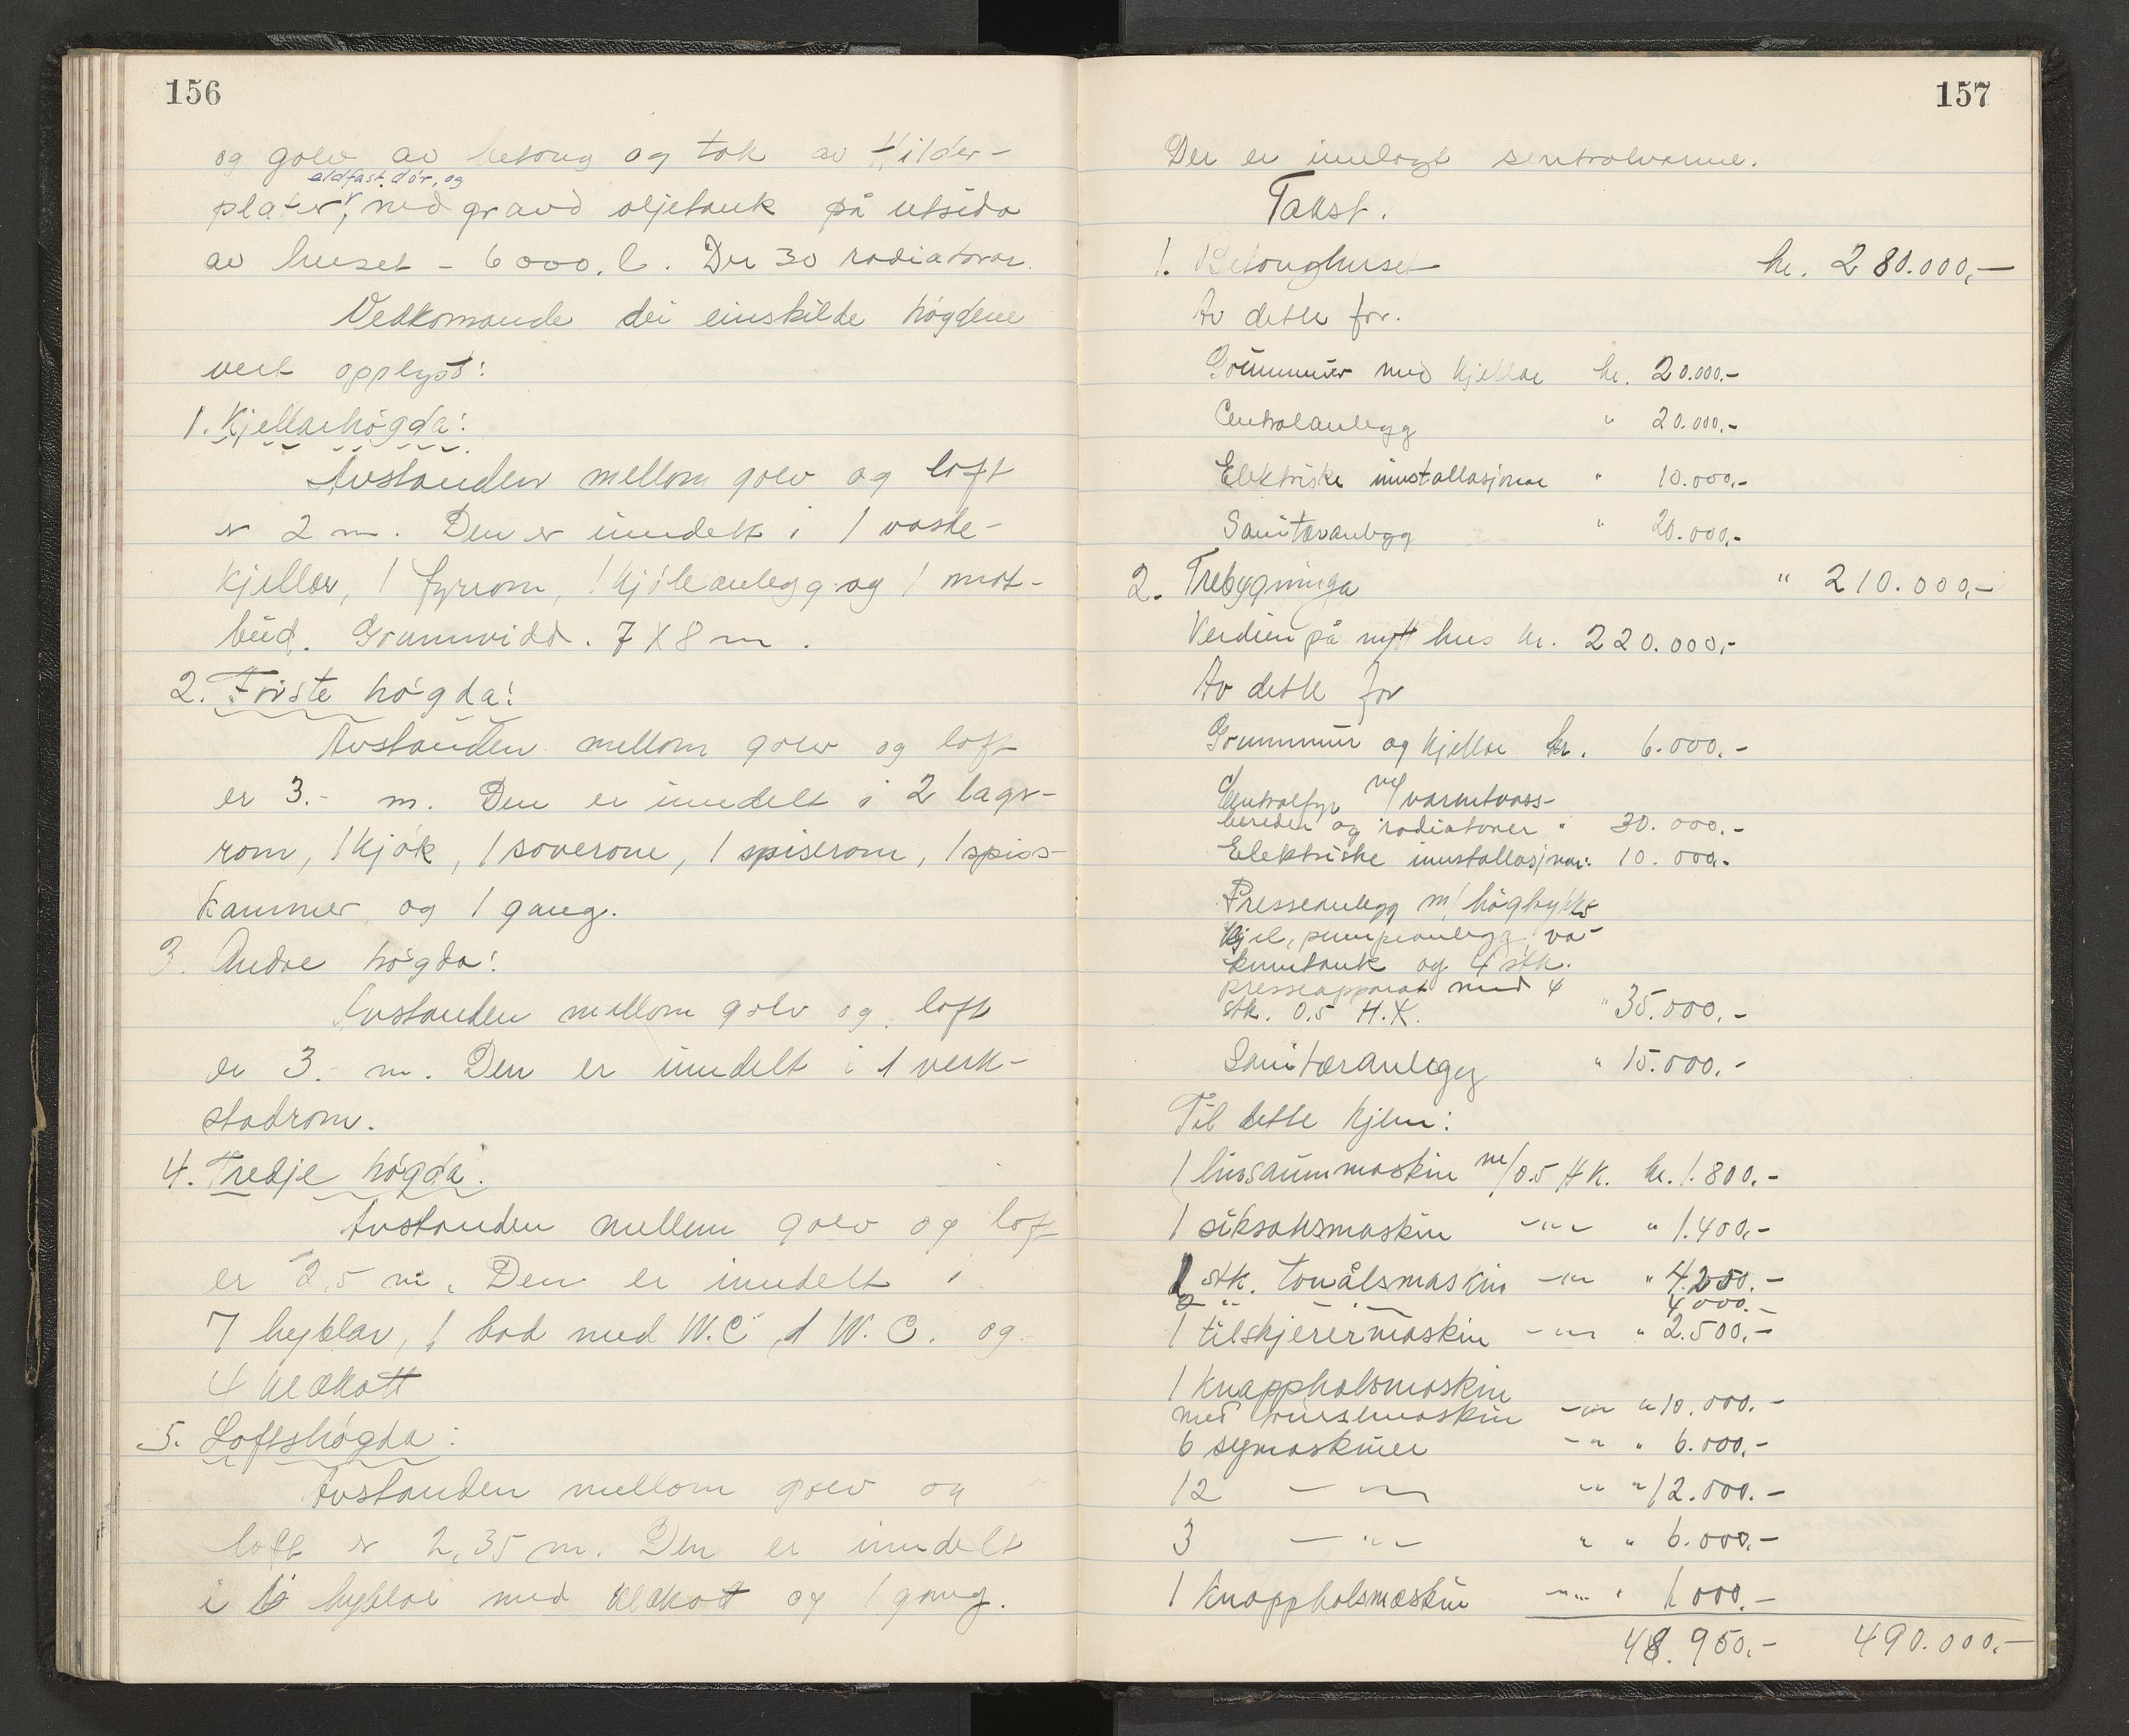 156
og golv av betong og tak av Hilder-
eldfast dør, og
plater, ned gravd oljetank på utsida
av huset - 6000. l. Der 30 radiatorar.
Vedkomande dei einskilde høgdene
vert opplyst:
1. Kjellarhøgda:
Avstanden mellom golv og loft
er 2 m. Den er inndelt i 1 vaske-
kjellar, 1 fyrrom, 1 kjøleanlegg og 1 mat-
bud. Grunnvidd. 7 X 8 m.
2. Første høgda:
Avstanden mellom golv og loft
er 3.- m. Den er inndelt i 2 lagr-
rom, 1 kjøk, 1 soverom, 1 spiserom, 1 spis-
kammer og 1 gang.
3. Andre høgda:
Avstanden mellom golv og loft
er 3.- m. Den er inndelt i 1 verk-
stadrom.
4. Tredje høgda:
Avstanden mellom golv og loft
er 2,5 m. Den er inndelt i
7 hyblar, 1 bad med W.C, 1 W.C. og
4 klækott
5. Loftshøgda:
Avstanden mellom golv og
loft er 2,35 m. Den er inndelt
i 6 hyblar med klækott og 1 gang.
157
Der er innlagt sentralvarme.
Takst.
1. Betonghuset kr. 280.000,-
Av dette for.
Grunnmur med kjellar kr. 20.000.-
Centralanlegg " 20.000.-
Elektriske innstallasjonar " 10.000.-
Sanitæranlegg " 20.000,-
2. Trebygninga " 210.000,-
Verdien på nytt hus kr. 220.000,-
Av dette for
Grunnmur og kjellar kr. 6.000.-
Centralfyr m/varmtvass-
bereder og radiatorer " 30.000.-
Elektriske innstallasjonar " 10.000.-
Presseanlegg m/høgtykks
kjel, pumpeanlegg, va-
kumtank og 4 stk.
presseapparat med 4
stk. 0.5 H.K. " 35.000.-
Sanitæranlegg " 15.000.-
Til dette kjem:
1 linsaummaskin m/0.5 HK. kr. 1.800.-
1 siksaksmaskin -"- " 1.400,-
1 stk. tonålsmaskin -"- " 4.250.-
2 " -"- 4.000.-
1 tilskjerermaskin -"- " 2.500,-
1 knappholsmaskin
med maskin -"- " 10.000.-
6 symaskiner -"- " 6.000,-
12 -"- " " 12.000.-
3 -"- " " 6.000,-
1 knappholsmaskin -"- " 1.000.-
48.950.- 490.000,-